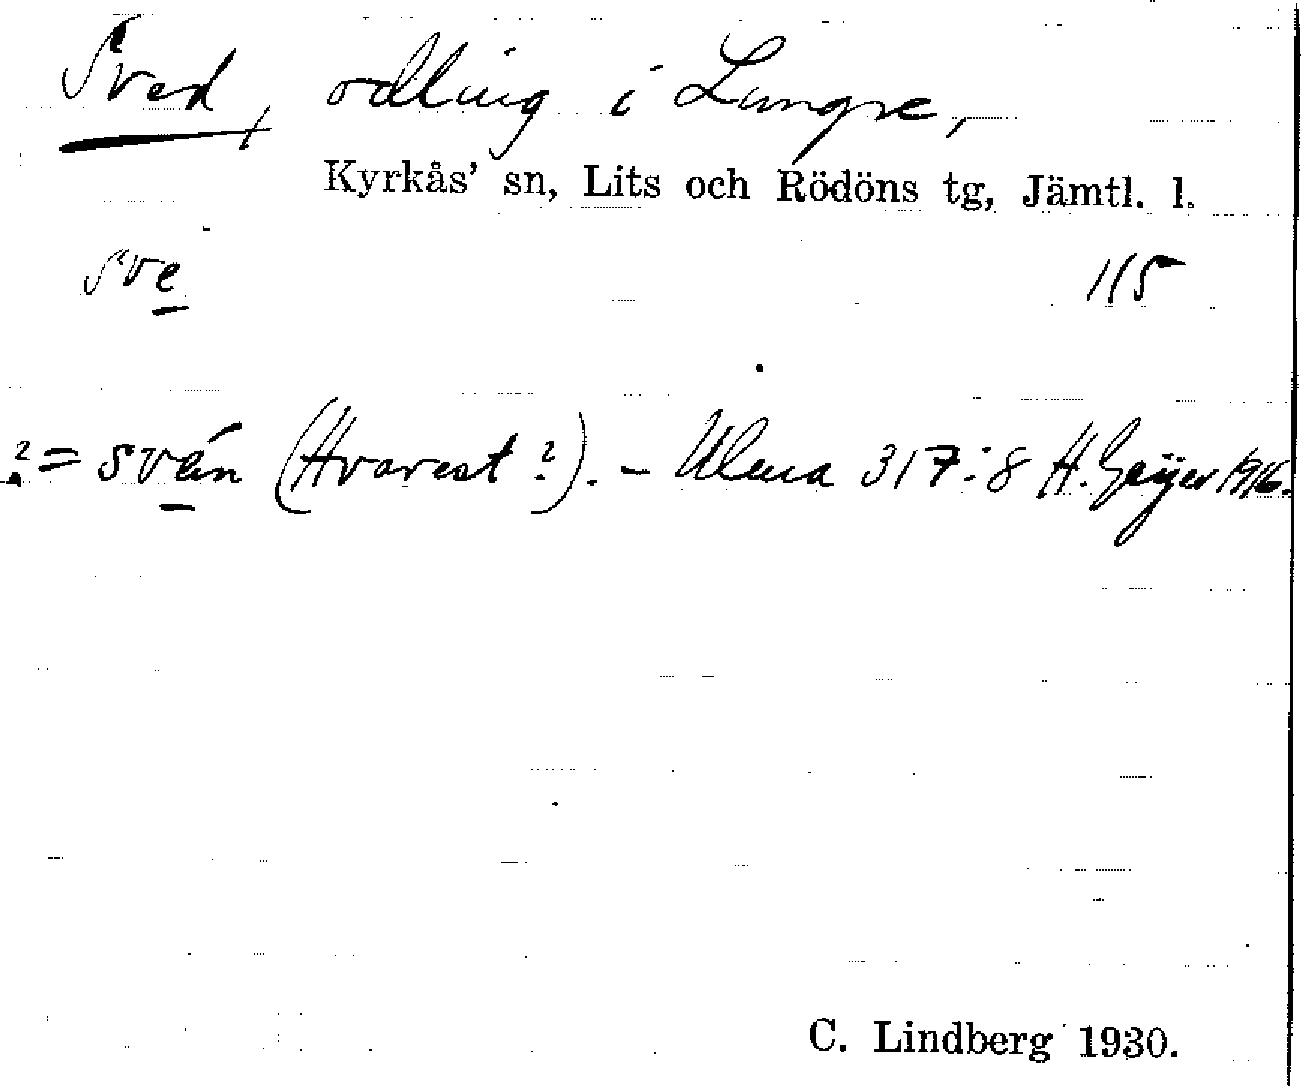 Sved, odling i Lungre,
Kyrkås' sn, Lits och Rödöns tg, Jämtl. l.
sve 115
?= svén (Hvarest?). – Ulma 317:8 H. Geijer 1916.
C. Lindberg 1930.